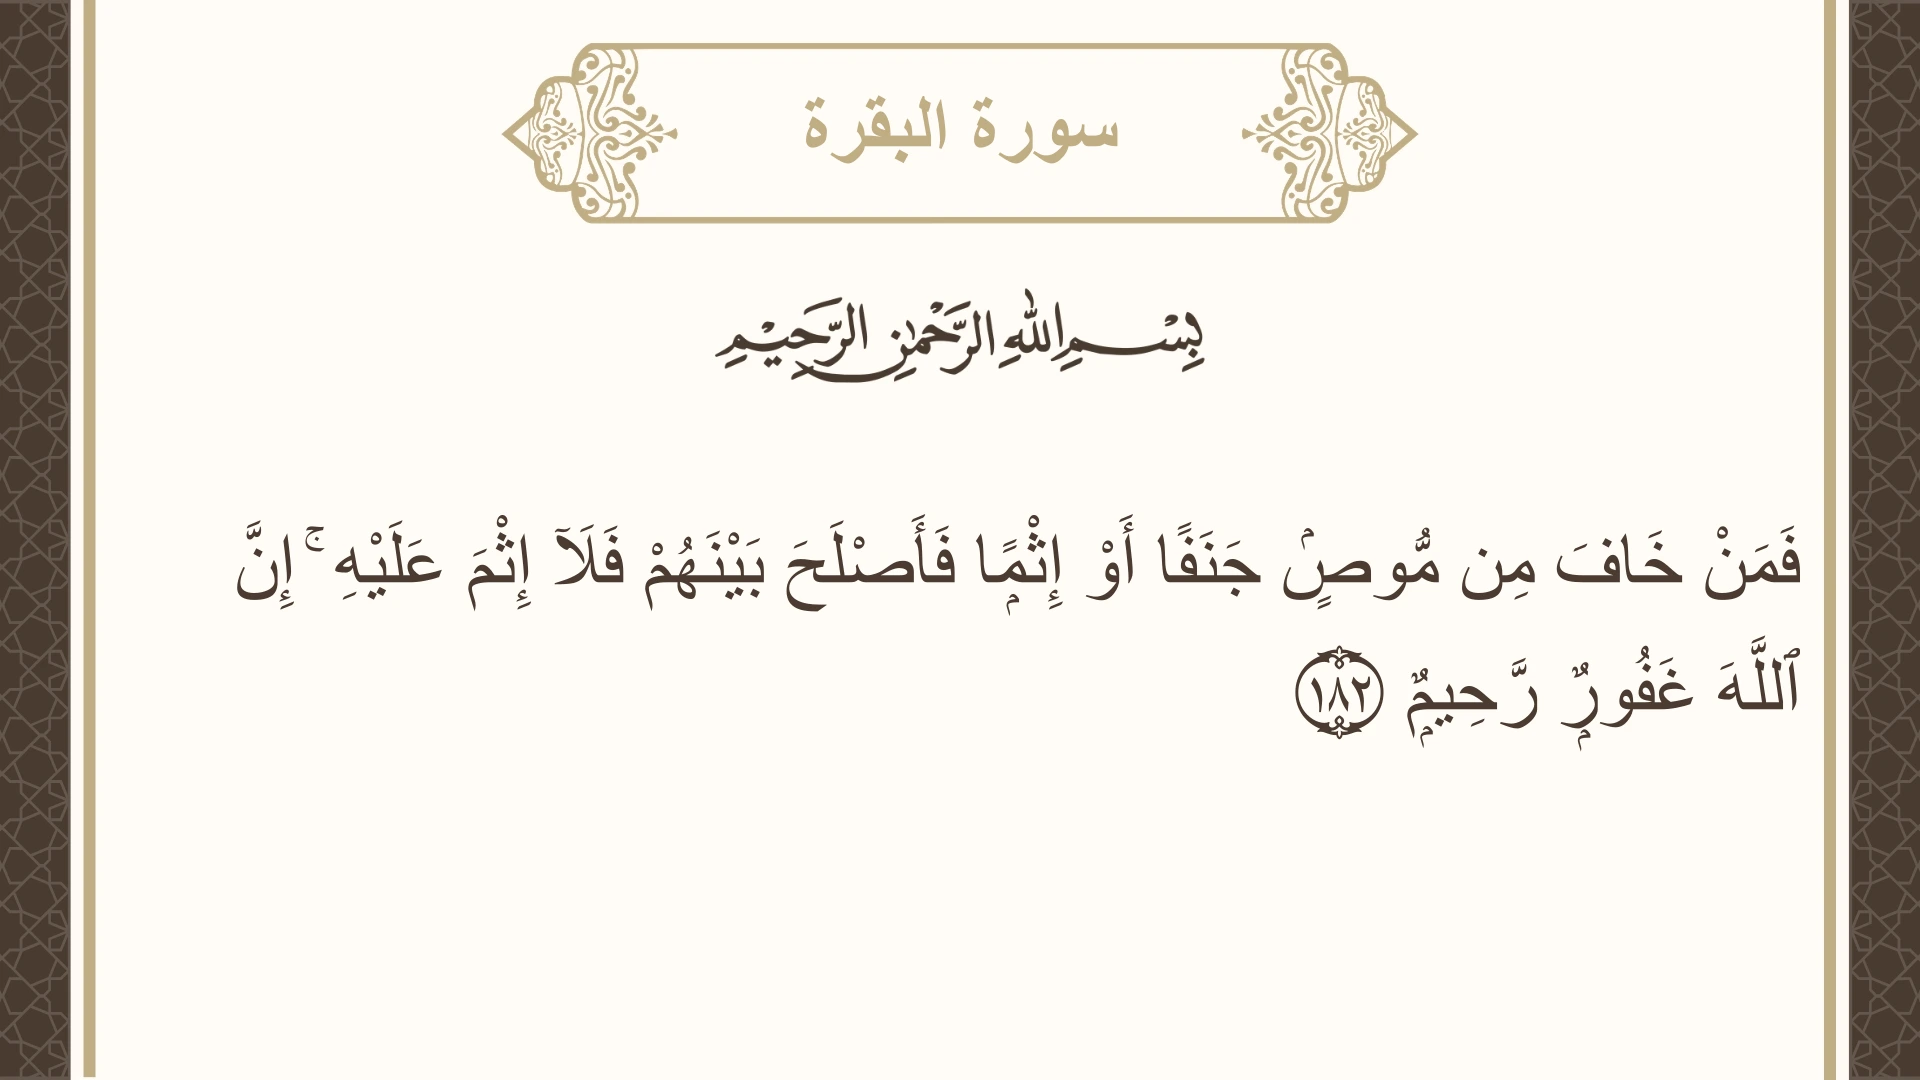 سورة البقرة
بِسْمِ اللهِ الرَّحْمٰنِ الرَّحِيْمِ
فَمَنْ خَافَ مِن مُّوصٍۢ جَنَفًا أَوْ إِثْمًۭا فَأَصْلَحَ بَيْنَهُمْ فَلَآ إِثْمَ عَلَيْهِ ۚ إِنَّ
ٱللَّهَ غَفُورٌۭ رَّحِيمٌۭ ١٨٢